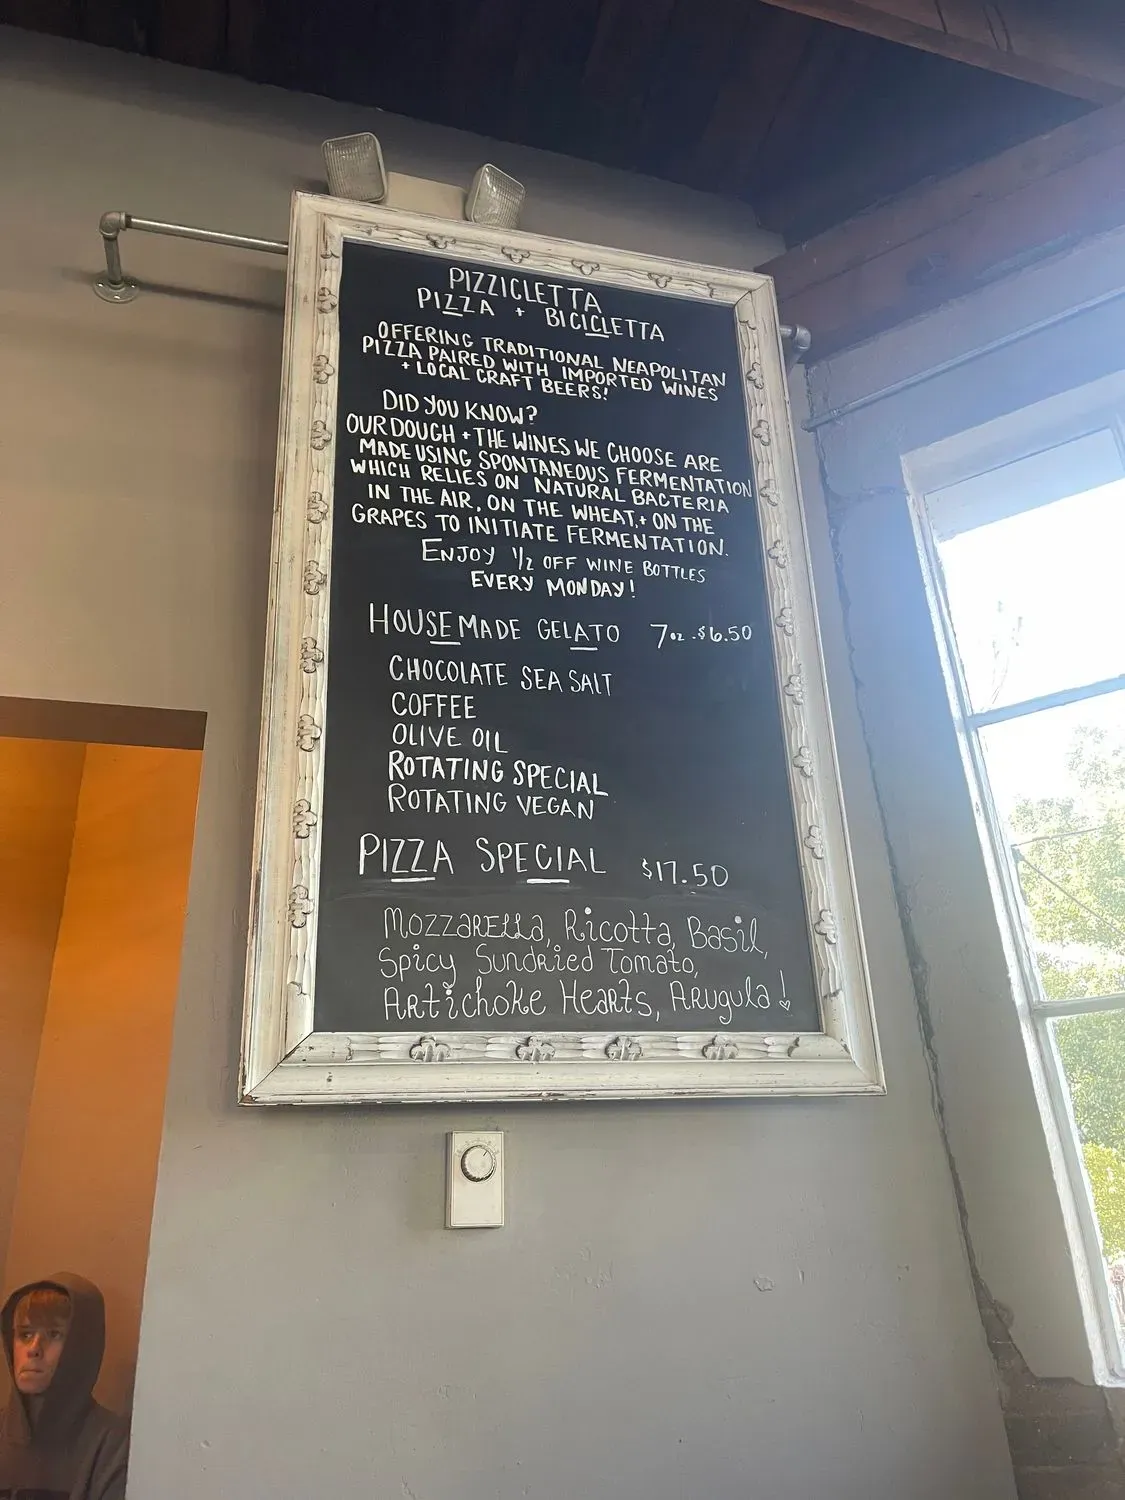 PIZZICLETTA
PIZZA + BICICLETTA
OFFERING TRADITIONAL NEAPOLITAN
PIZZA PAIRED WITH IMPORTED WINES
+ LOCAL CRAFT BEERS!
DID YOU KNOW?
OUR DOUGH + THE WINES WE CHOOSE ARE
MADE USING SPONTANEOUS FERMENTATION
WHICH RELIES ON NATURAL BACTERIA
IN THE AIR, ON THE WHEAT, + ON THE
GRAPES TO INITIATE FERMENTATION.
ENJOY 1/2 OFF WINE BOTTLES
EVERY MONDAY!
HOUSEMADE GELATO 7oz.-$6.50
CHOCOLATE SEA SALT
COFFEE
OLIVE OIL
ROTATING SPECIAL
ROTATING VEGAN
PIZZA SPECIAL $17.50
Mozzarella, Ricotta, Basil,
Spicy Sundried Tomato,
Artichoke Hearts, Arugula!